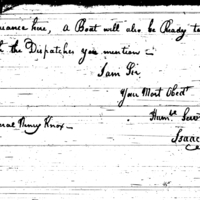 uance here, a Boat will also be Ready to
the Dispatches you mention —
I am Sir
Your Most Obedt
Humbe Serv
eral Henry Knox —
Isaac